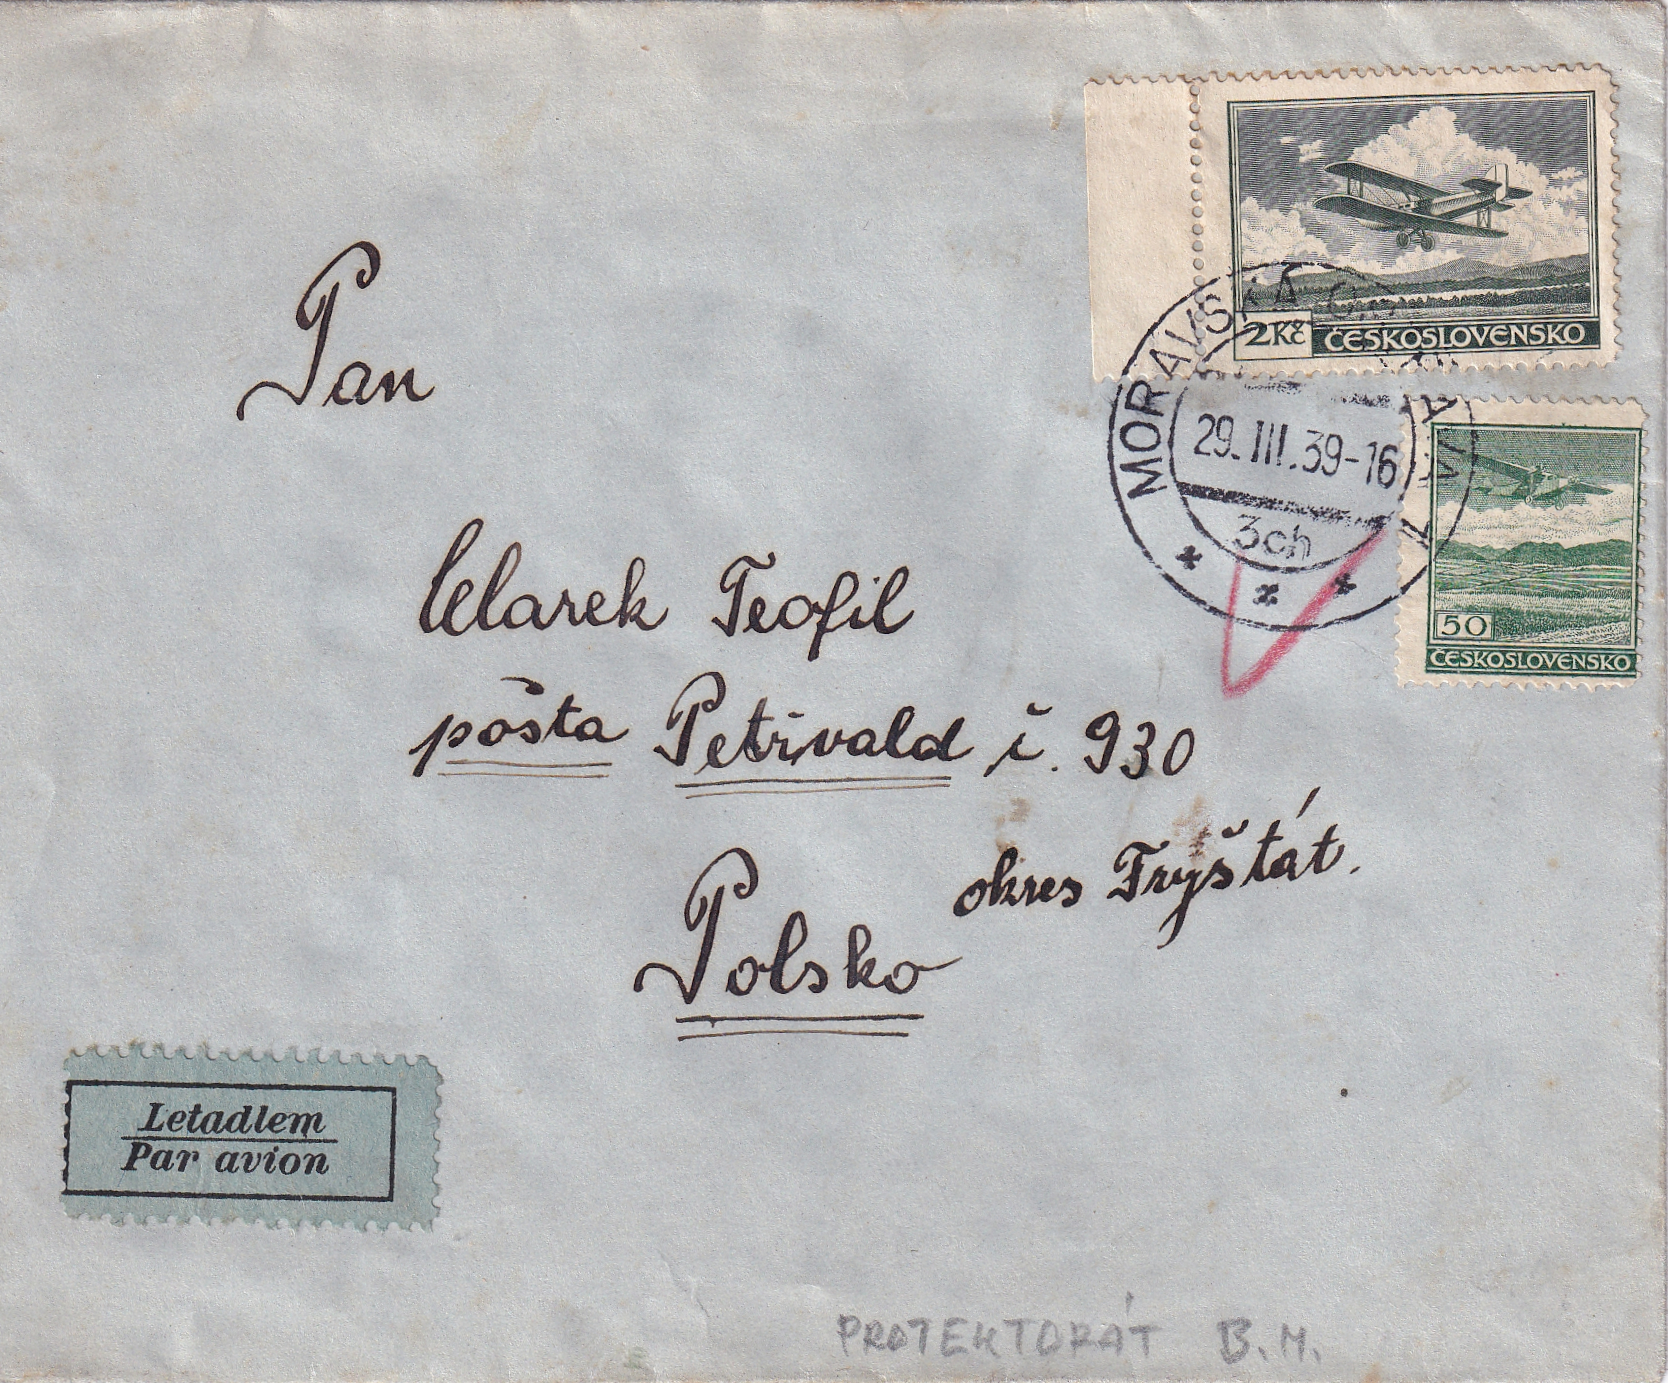 2Kč ČESKOSLOVENSKO
MORAVSKÁ OSTRAVA 1
29.III.39-16
3ch
50
ČESKOSLOVENSKO
Pan
Teofil
pošta Petřvald č. 930
okres Fryštát.
Polsko
Letadlem
Par avion
PROTEKTORÁT B.M.